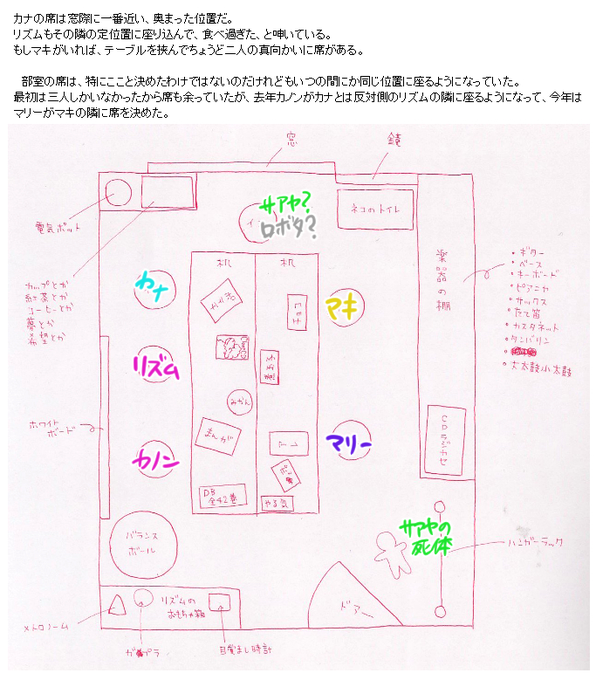 カナの席は窓際に一番近い、奥まった位置だ。
リズムもその隣の定位置に座り込んで、食べ過ぎた、と呻いている。
もしマキがいれば、テーブルを挟んでちょうど二人の真向かいに席がある。
部室の席は、特にここと決めたわけではないのだけれどもいつの間にか同じ位置に座るようになっていた。
最初は三人しかいなかったから席も余っていたが、去年カノンがカナとは反対側のリズムの隣に座るようになって、今年は
マリーがマキの隣に席を決めた。
窓
鏡
電気ポット
サアヤ?
ロボタ?
ネコのトイレ
楽器の棚
カップとか
紅茶とか
コーヒーとか
夢とか
希望とか
カナ
机
机
マキ
・ギター
・ベース
・キーボード
・ピアニカ
・サックス
・たて笛
・カスタネット
・タンバリン
・大太鼓小太鼓
リズム
みかん
ホワイト
ボード
カノン
まんが
マリー
CDラジカセ
DB
全42巻
やる気
バランス
ボール
サアヤの
死体
ハンガーラック
リズムの
おもちゃ箱
ドアー
メトロノーム
ガンプラ
目覚まし時計